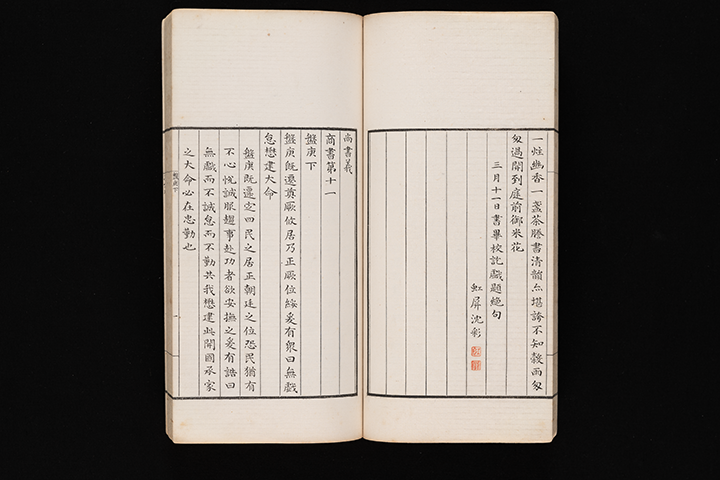 一炷幽香一盞茶謄書清韻亦堪誇不知穀雨匆
匆過開到庭前御米花
三月十一日書畢校訖戲題絕句
虹屏沈彩
尚書義
商書第十一
盤庚下
盤庚既遷奠厥攸居乃正厥位綏爰有衆曰無戲
怠懋建大命
盤庚既遷定四民之居正朝廷之位恐民猶有
不心悅誠服趨事赴功者欲安撫之爰有誥曰
無戲而不誠怠而不勤共我懋建此開國承家
之大命必在忠勤也
盤庚下
一